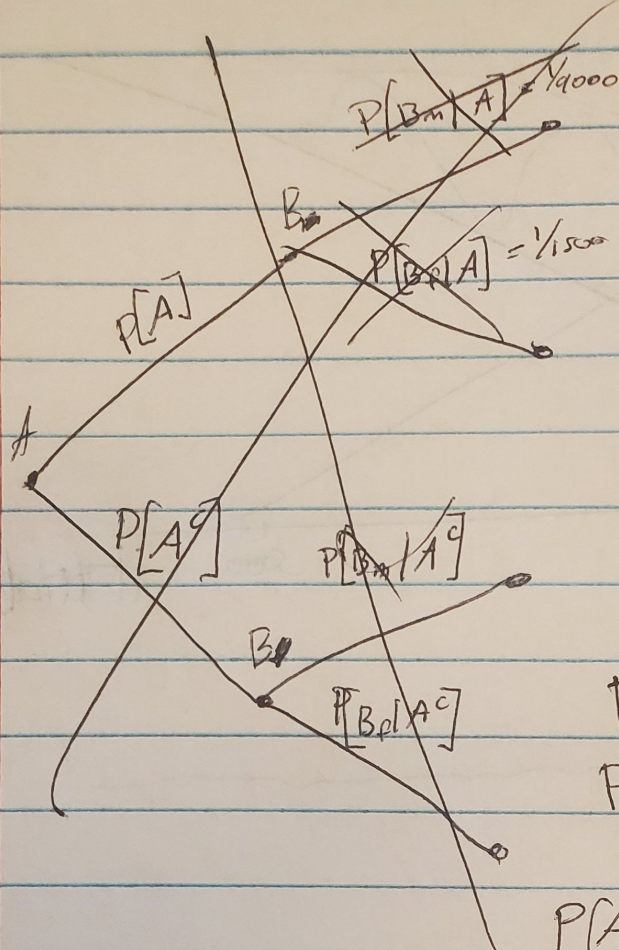 P[Bm|A] = 1/9000
B
P[Bf|A] = 1/1500
P[A]
A
P[A^c]
P[Bm|A^c]
B
P[Bf|A^c]
P[A